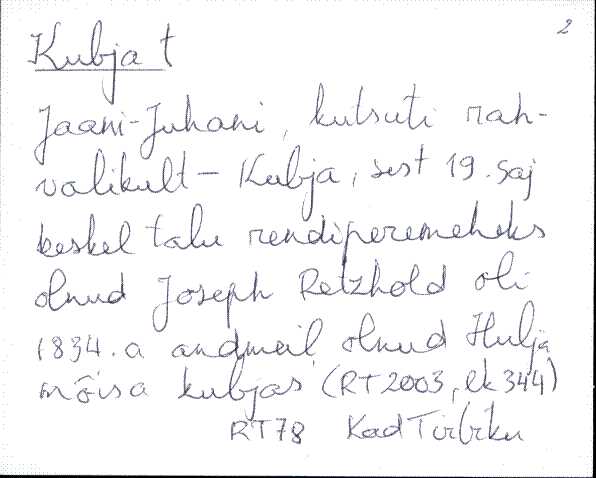 2
Kubja t
Jaani-Juhani, kutsuti rah-
valikult - Kubja, sest 19. saj
keskel talu rendiperemeheks
olnud Joseph Retzhold oli
1834. a andmeil olnud Hulja
mõisa kubjas (RT 2003, lk 344)
RT78 Kad Türbiku